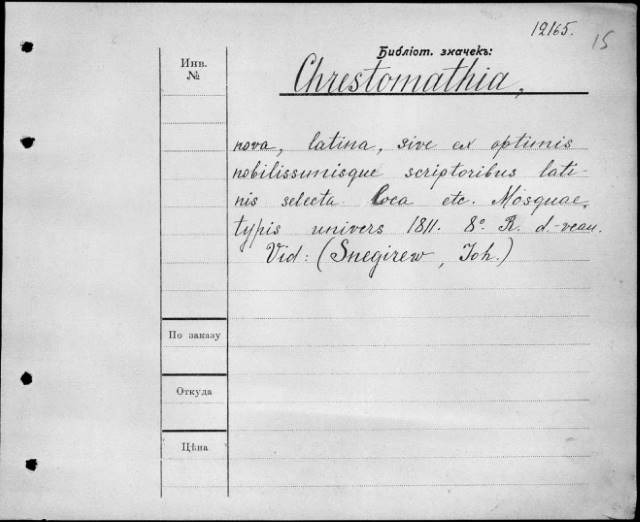 12165.
15
Библіот. значекъ:
Инв.
№
Chrestomathia,
nova, latina, sive ex optimis
nobilissimisque scriptoribus lati-
nis selecta loca etc. Mosquae,
typis univers 1811. 8º. R. d.-veau.
Vid: (Snegirew, Joh.)
По заказу
Откуда
Цѣна